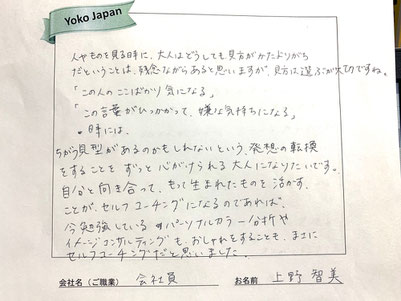 Yoko Japan
人やものを見る時に、大人はどうしても見方がかたよりがち
だということは、残念ながらあると思いますが、見方は選ぶが大切ですね。
「この人のここばかり気になる」
「この言葉がひっかかって、嫌な気持ちになる」
・時には、
ちがう見型があるのかもしれないという、発想の転換
をすることを ずっと 心がけられる大人になりたいです。
自分と向き合って、もって生まれたものを活かす
ことが、セルフコーチングになるのであれば、
今勉強している パーソナルカラー分析や
イメージコンサルティングも、おしゃれをすることも、まさに
セルフコーチングだと思いました。
会社名（ご職業） 会社員 お名前 上野 智美